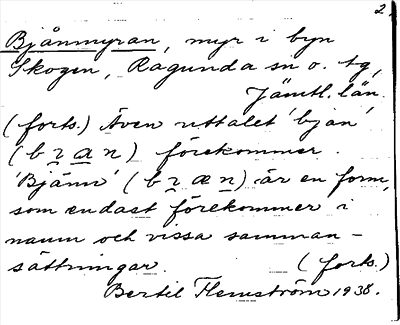 2.
Bjånmyran, myr i byn
Skogen, Ragunda sn o. tg,
Jämtl. län.
(forts.) Även uttalet 'bjan'
(b ɿ a n) förekommer.
'Bjänn' (b ɿ æ n) är en form,
som endast förekommer i
namn och vissa samman-
sättningar. (forts.)
Bertil Flemström 1938.